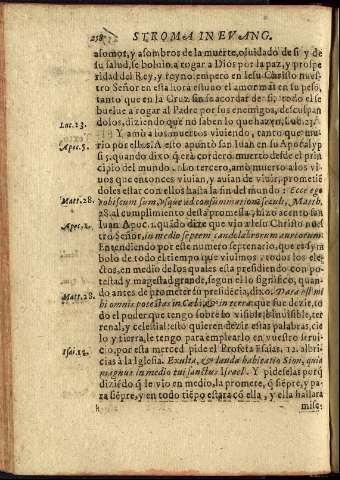 258 STROMA IN EVANG.
asomos, y asombros de la muerte, oluidado de si y de
su salud, se boluio a rogar a Dios por la paz, y prospe
ridad del Rey, y reyno: empero en Iesu Christo nues
tro Señor en esta hora estuuo el amor mas en su peso,
tanto que en la Cruz sin se acordar de si; todo el se
buelue a rogar al Padre por sus enemigos, desculpan
dolos, diziendo que no saben lo que hazen, Luc. 23.
Luc. 23.
Y amò a los muertos viuiendo, tanto que mu
rio por ellos. A esto apuntò san Iuan en su Apocalyp
Apoc. 5.
si 5. quando dixo q̃ era cordero muerto desde el prin
cipio del mundo. Lo tercero, amò muerto a los vi
uos que entonces viuian, y auian de viuir, prometiẽ
doles estar con ellos hasta la fin del mundo: Ecce ego
vobiscum sum, vsque ad consummationem seculi, Matth.
Matt. 28.
28. al cumplimiento desta promessa, hizo acento san
Iuan Apoc. 1. quãdo dize que vio a Iesu Christo nues
Apoc. 1.
tro Señor, in medio septem candelabrorum aureorum.
Entendiendo por este numero septenario, que es sym
bolo de todo el tiempo que viuimos, todos los ele-
ctos, en medio de los quales esta presidiendo con po-
testad y magestad grande, segun el lo significò, quan
do antes de prometer su presidencia, dixo. Data est mi
Matt. 28.
hi omnis potestas in Cælo, & in terra: que fue dezir, to
do el poder que tengo sobre lo visible, e inuisible, ter
renal, y celestial: esto quieren dezir estas palabras, cie
lo y tierra, le tengo para emplearlo en vuestro serui-
cio, por esta merced pide el Profeta Esaias, 12. albri-
Isai. 12.
cias à la Iglesia. Exulta, & lauda habitatio Sion, quia
magnus in medio tui sanctus Israel. Y pideselas porq̃
diziẽdo q̃ le vio en medio, la promete, q̃ siẽpre, y pa-
ra siẽpre, y en todo tiẽpo estara cõ ella, y ella hallara
mise-